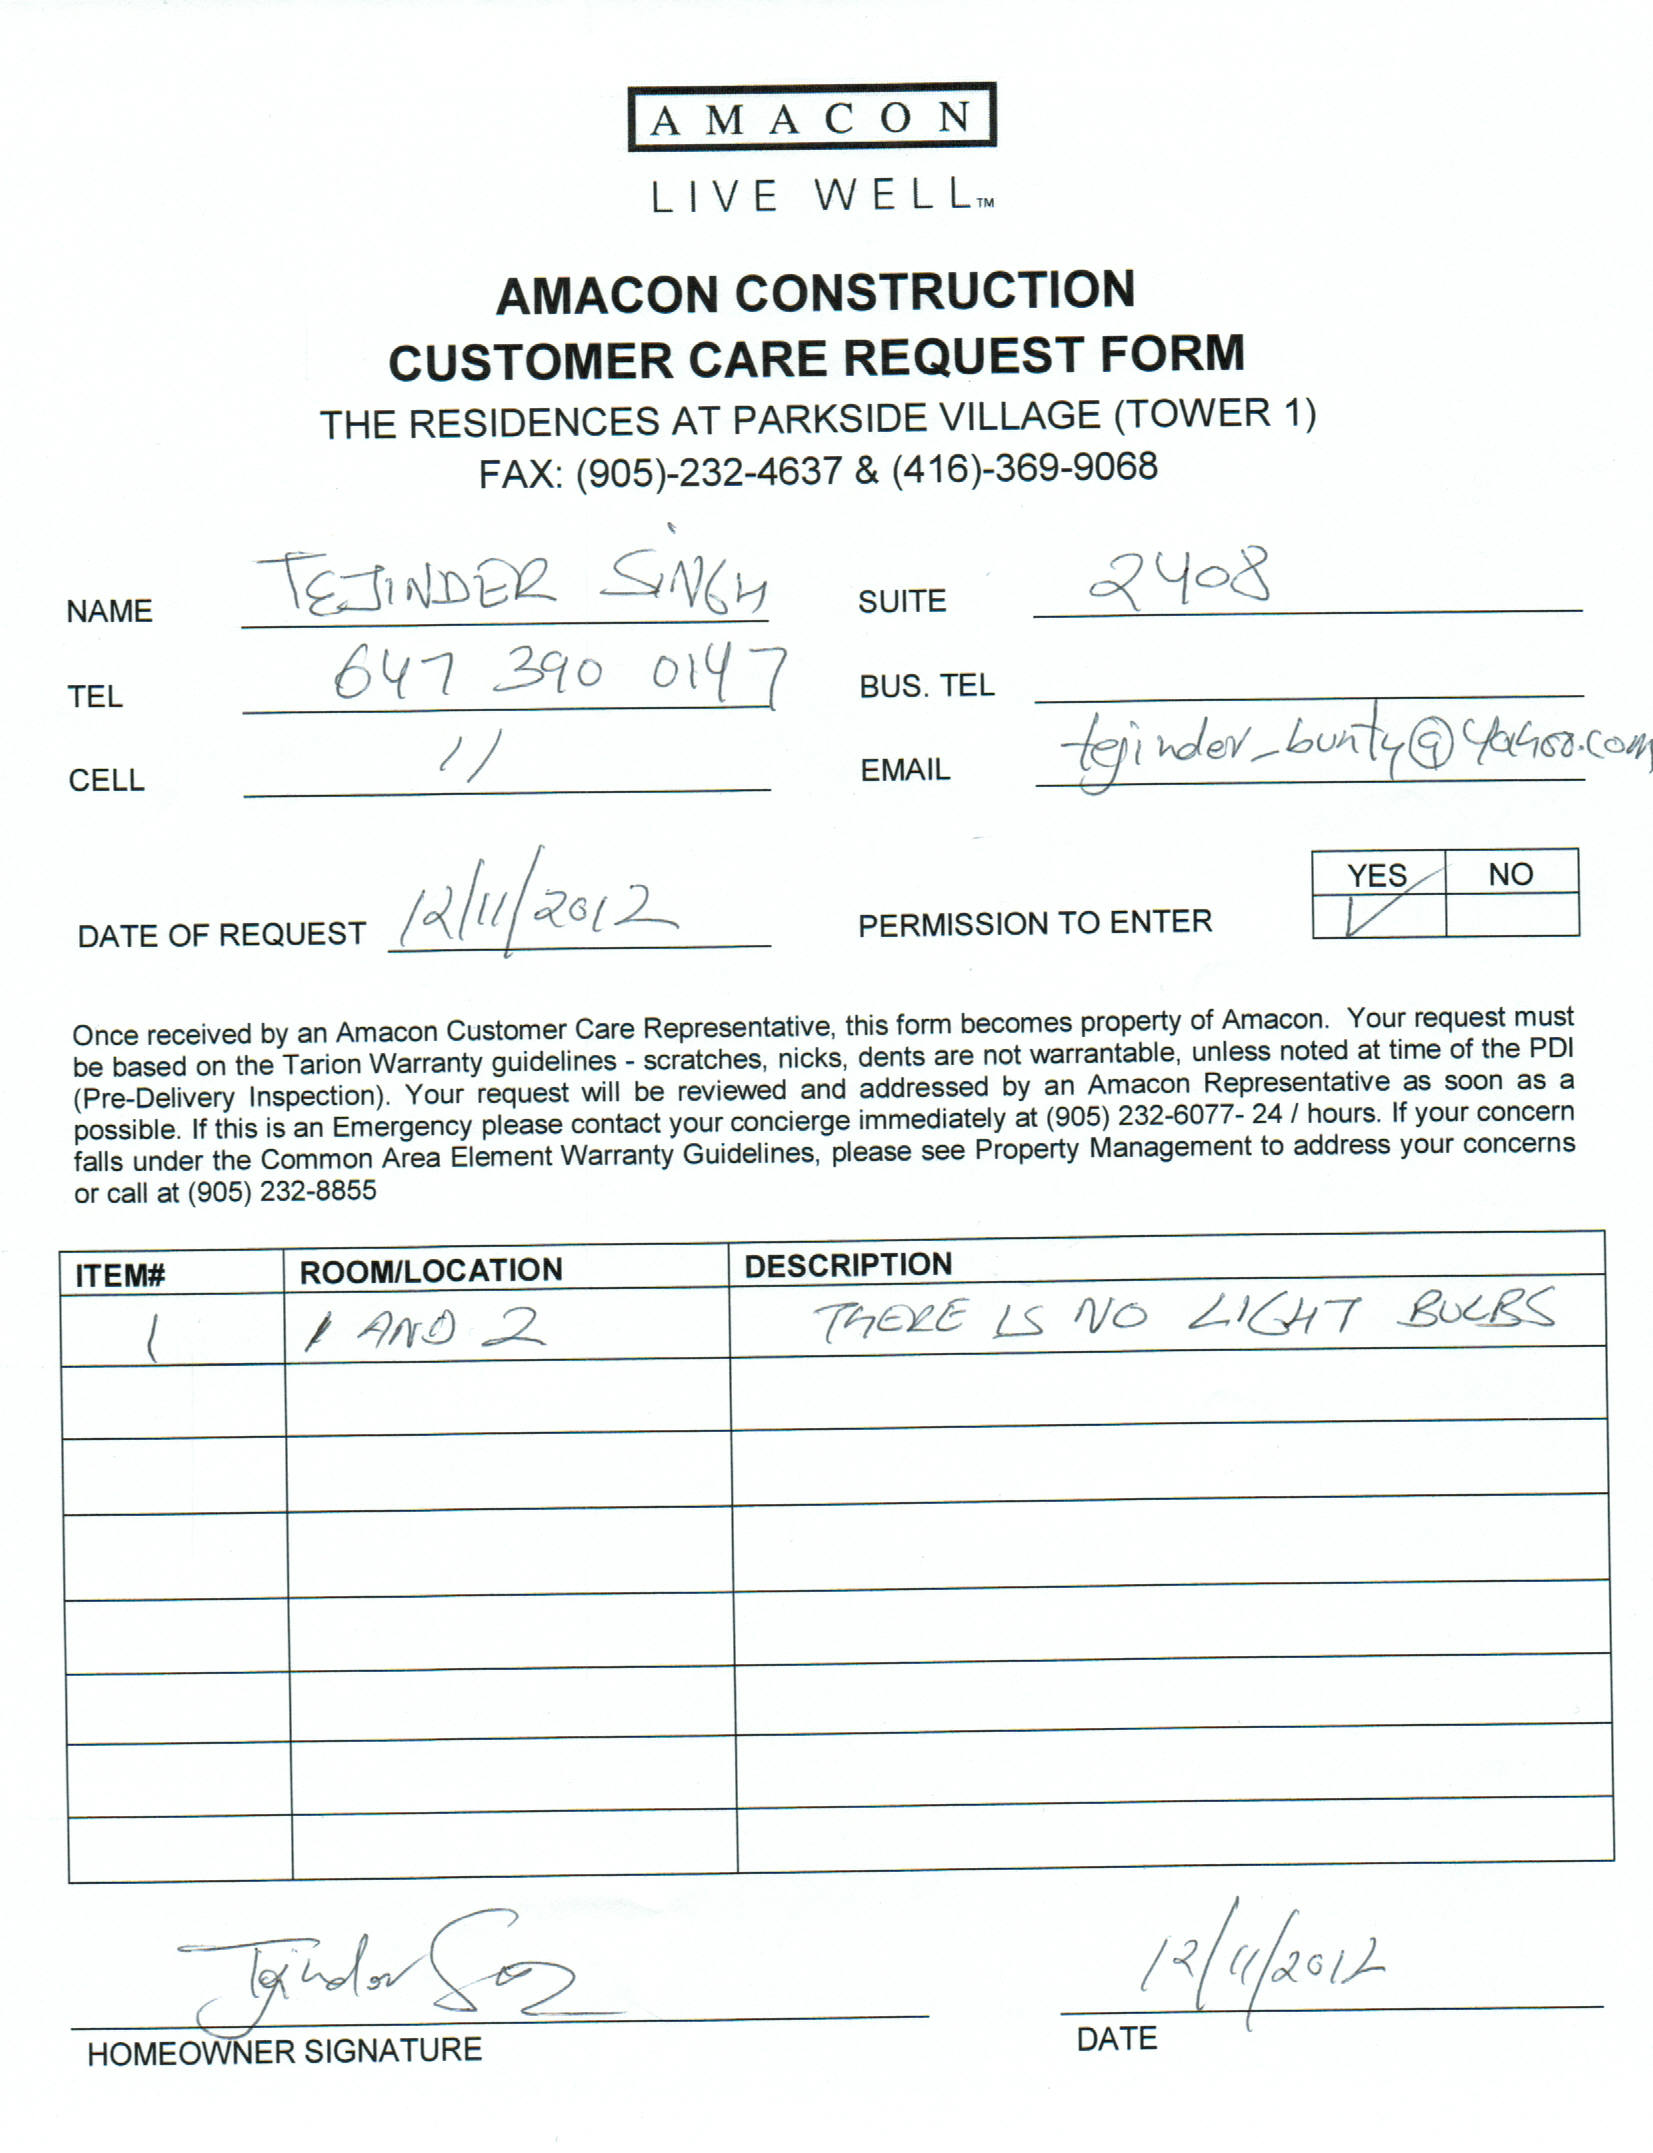 AMACON
LIVE WELL™
AMACON CONSTRUCTION
CUSTOMER CARE REQUEST FORM
THE RESIDENCES AT PARKSIDE VILLAGE (TOWER 1)
FAX: (905)-232-4637 & (416)-369-9068
NAME TEJINDER SINGH SUITE 2408
TEL 647 390 0147 BUS. TEL
CELL 11 EMAIL tejinder_bunty@yahoo.com
YES NO
DATE OF REQUEST 12/11/2012 PERMISSION TO ENTER ✓
Once received by an Amacon Customer Care Representative, this form becomes property of Amacon. Your request must
be based on the Tarion Warranty guidelines - scratches, nicks, dents are not warrantable, unless noted at time of the PDI
(Pre-Delivery Inspection). Your request will be reviewed and addressed by an Amacon Representative as soon as a
possible. If this is an Emergency please contact your concierge immediately at (905) 232-6077- 24 / hours. If your concern
falls under the Common Area Element Warranty Guidelines, please see Property Management to address your concerns
or call at (905) 232-8855
ITEM# ROOM/LOCATION DESCRIPTION
1 1 AND 2 THERE IS NO LIGHT BULBS
Tejinder Singh 12/11/2012
HOMEOWNER SIGNATURE DATE